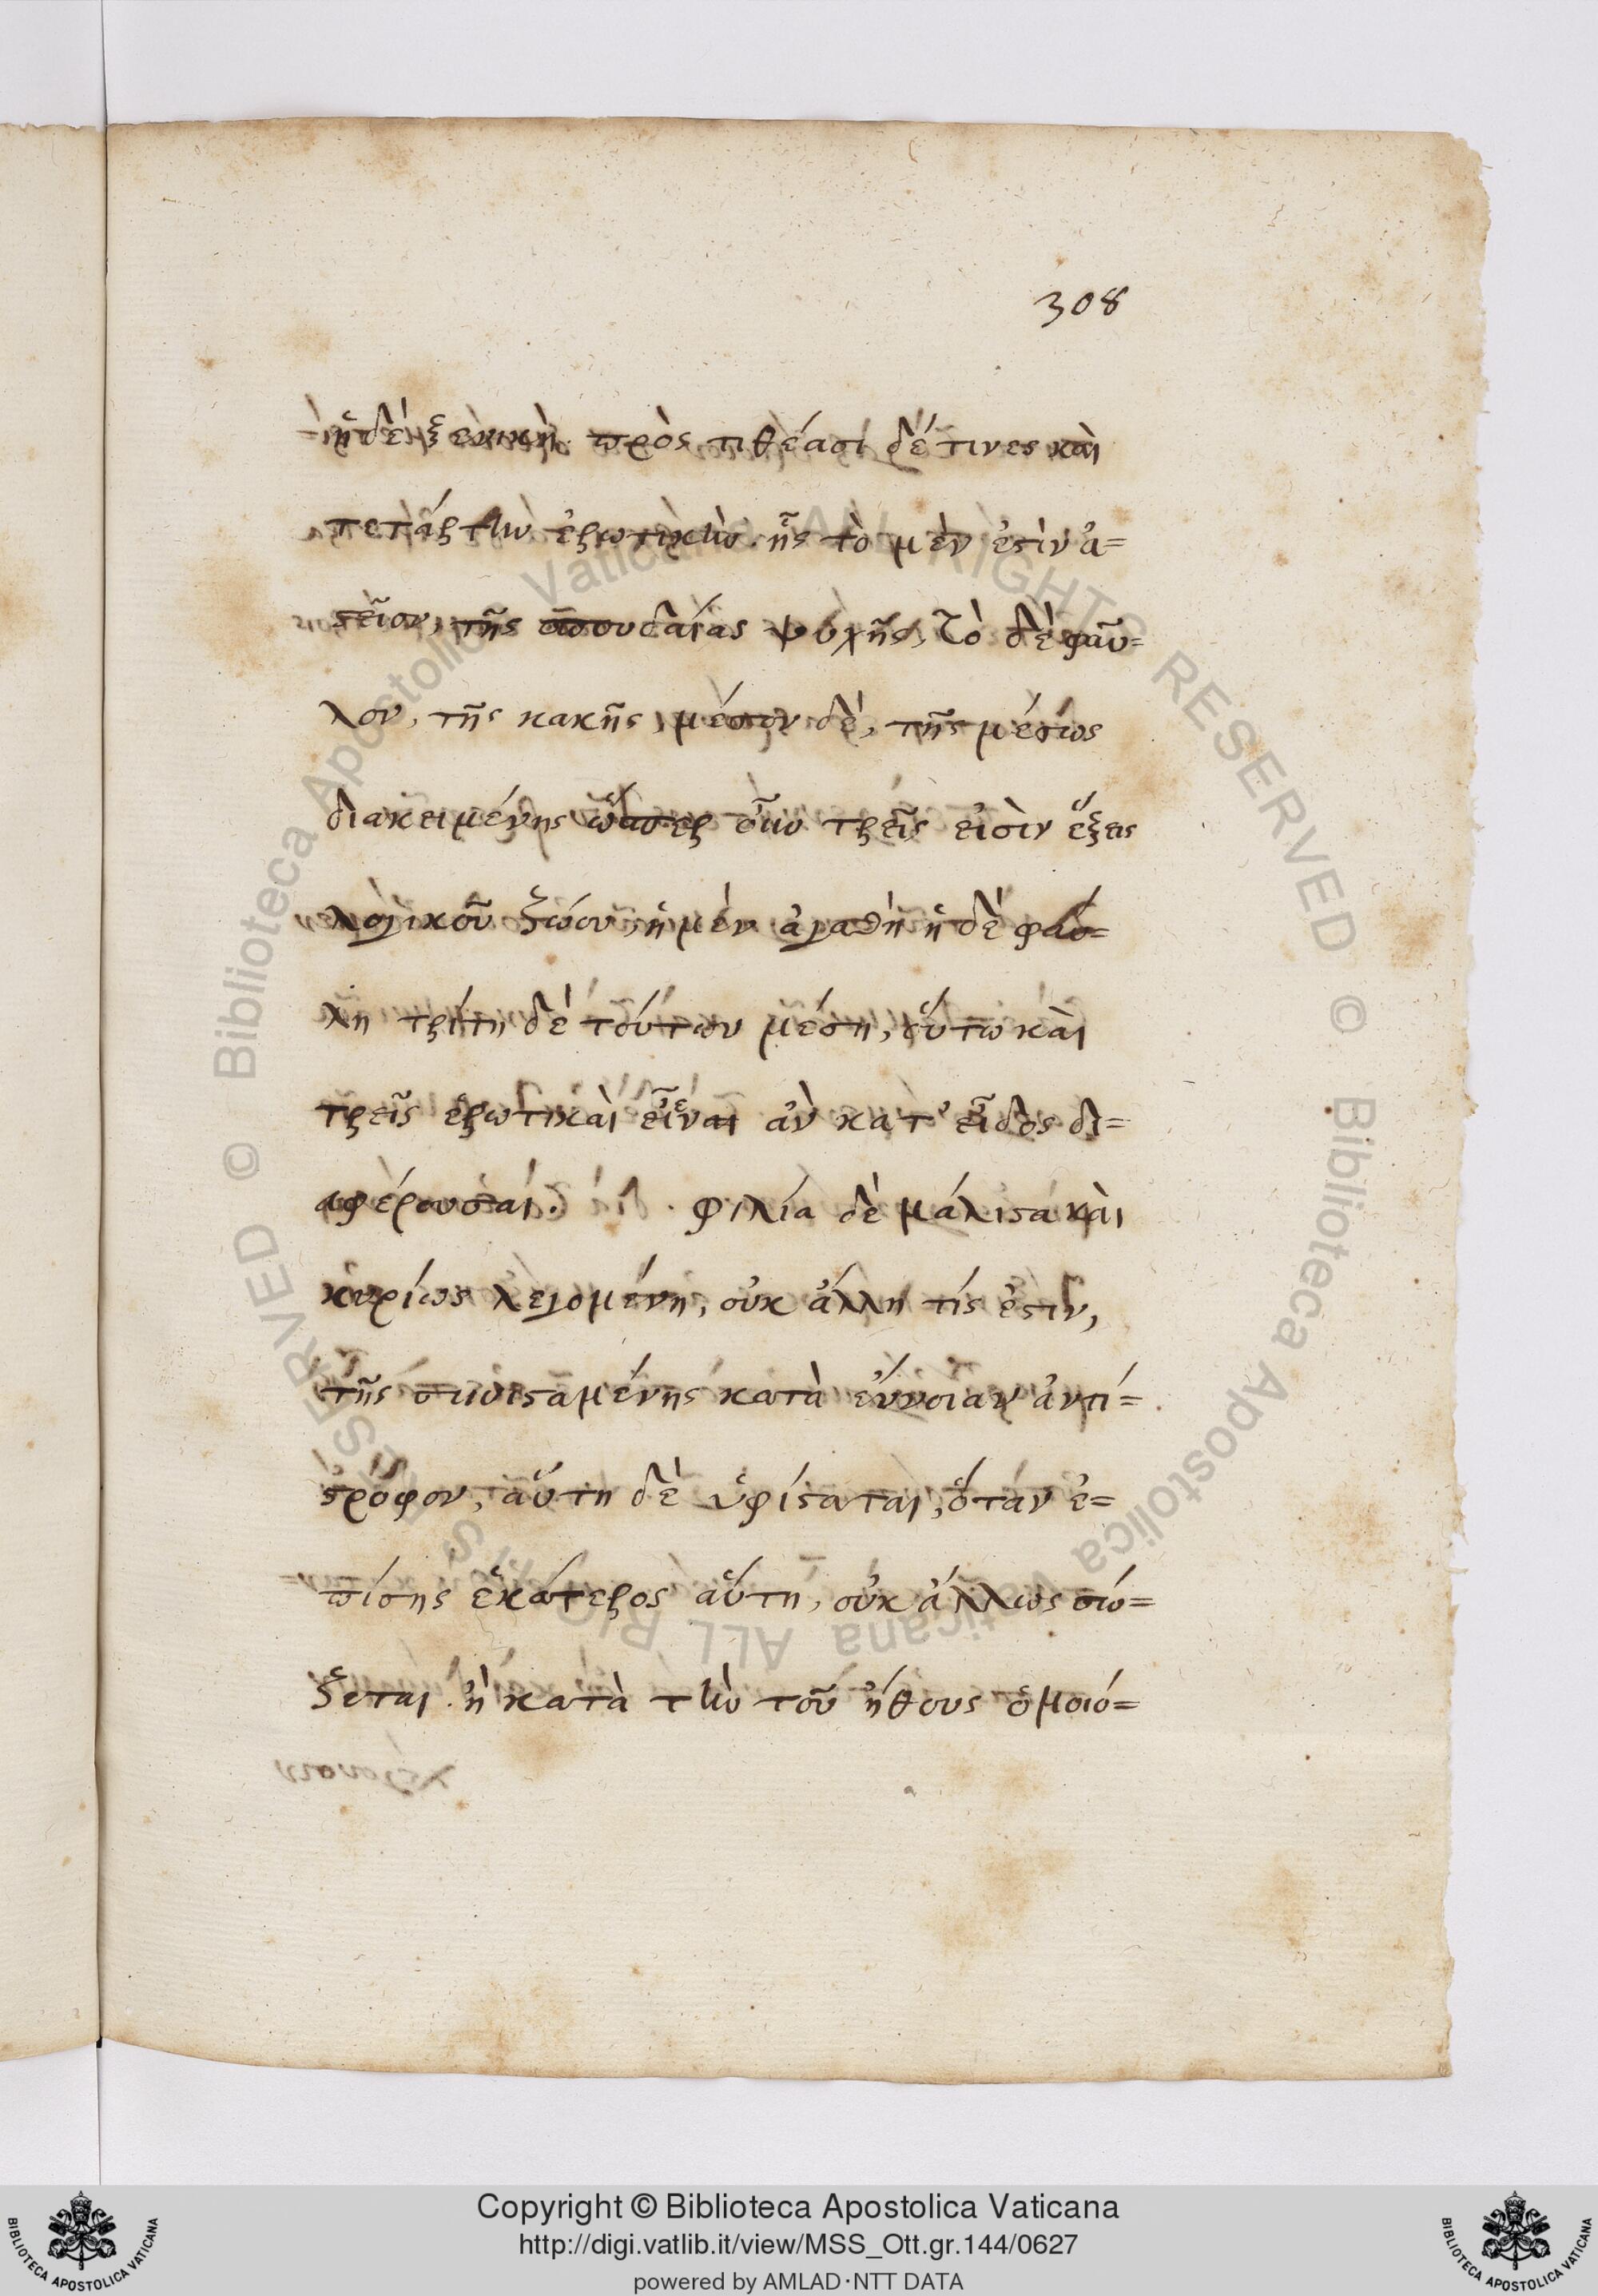 308
ἡ δὲ ξενικὴ. πρὸς τιθέασι δέ τινες καὶ
τετάρτην ἐρωτικὴν. ἧς τὸ μὲν ἐστὶν ἀ=
στεῖον, τῆς σπουδαίας ψυχῆς, τὸ δὲ φαῦ=
λον, τῆς κακῆς, μέσον δὲ, τῆς μέσως
διακειμένης ὥσπερ οὖν τρεῖς εἰσὶν ἕξεις
λογικοῦ ζώου, ἡ μὲν ἀγαθὴ ἡ δὲ φαύ=
λη τρίτη δὲ τούτων μέση, οὕτω καὶ
τρεῖς ἐρωτικαὶ εἶεν αν ἀν κατ' εἶδος δι=
αφέρουσαι. φιλία δὲ μάλιστα καὶ
κυρίως λεγομένη, οὐκ ἄλλη τίς ἐστιν,
τῆς συνισταμένης κατὰ εὔνοιαν ἀντί=
στρόφον, αὕτη δὲ ὑφίσταται, ὅταν ἐ=
πίσης ἑκάτερος αὕτη, οὐκ ἄλλως σώ=
ζεται. ἢ κατὰ τὴν τοῦ ἤθους ὁμοιό=
Copyright © Biblioteca Apostolica Vaticana
http://digi.vatlib.it/view/MSS_Ott.gr.144/0627
powered by AMLAD·NTT DATA
BIBLIOTECA APOSTOLICA VATICANA
BIBLIOTECA APOSTOLICA VATICANA
© Biblioteca Apostolica Vaticana ALL RIGHTS RESERVED © Biblioteca Apostolica Vaticana ALL RIGHTS RESERVED